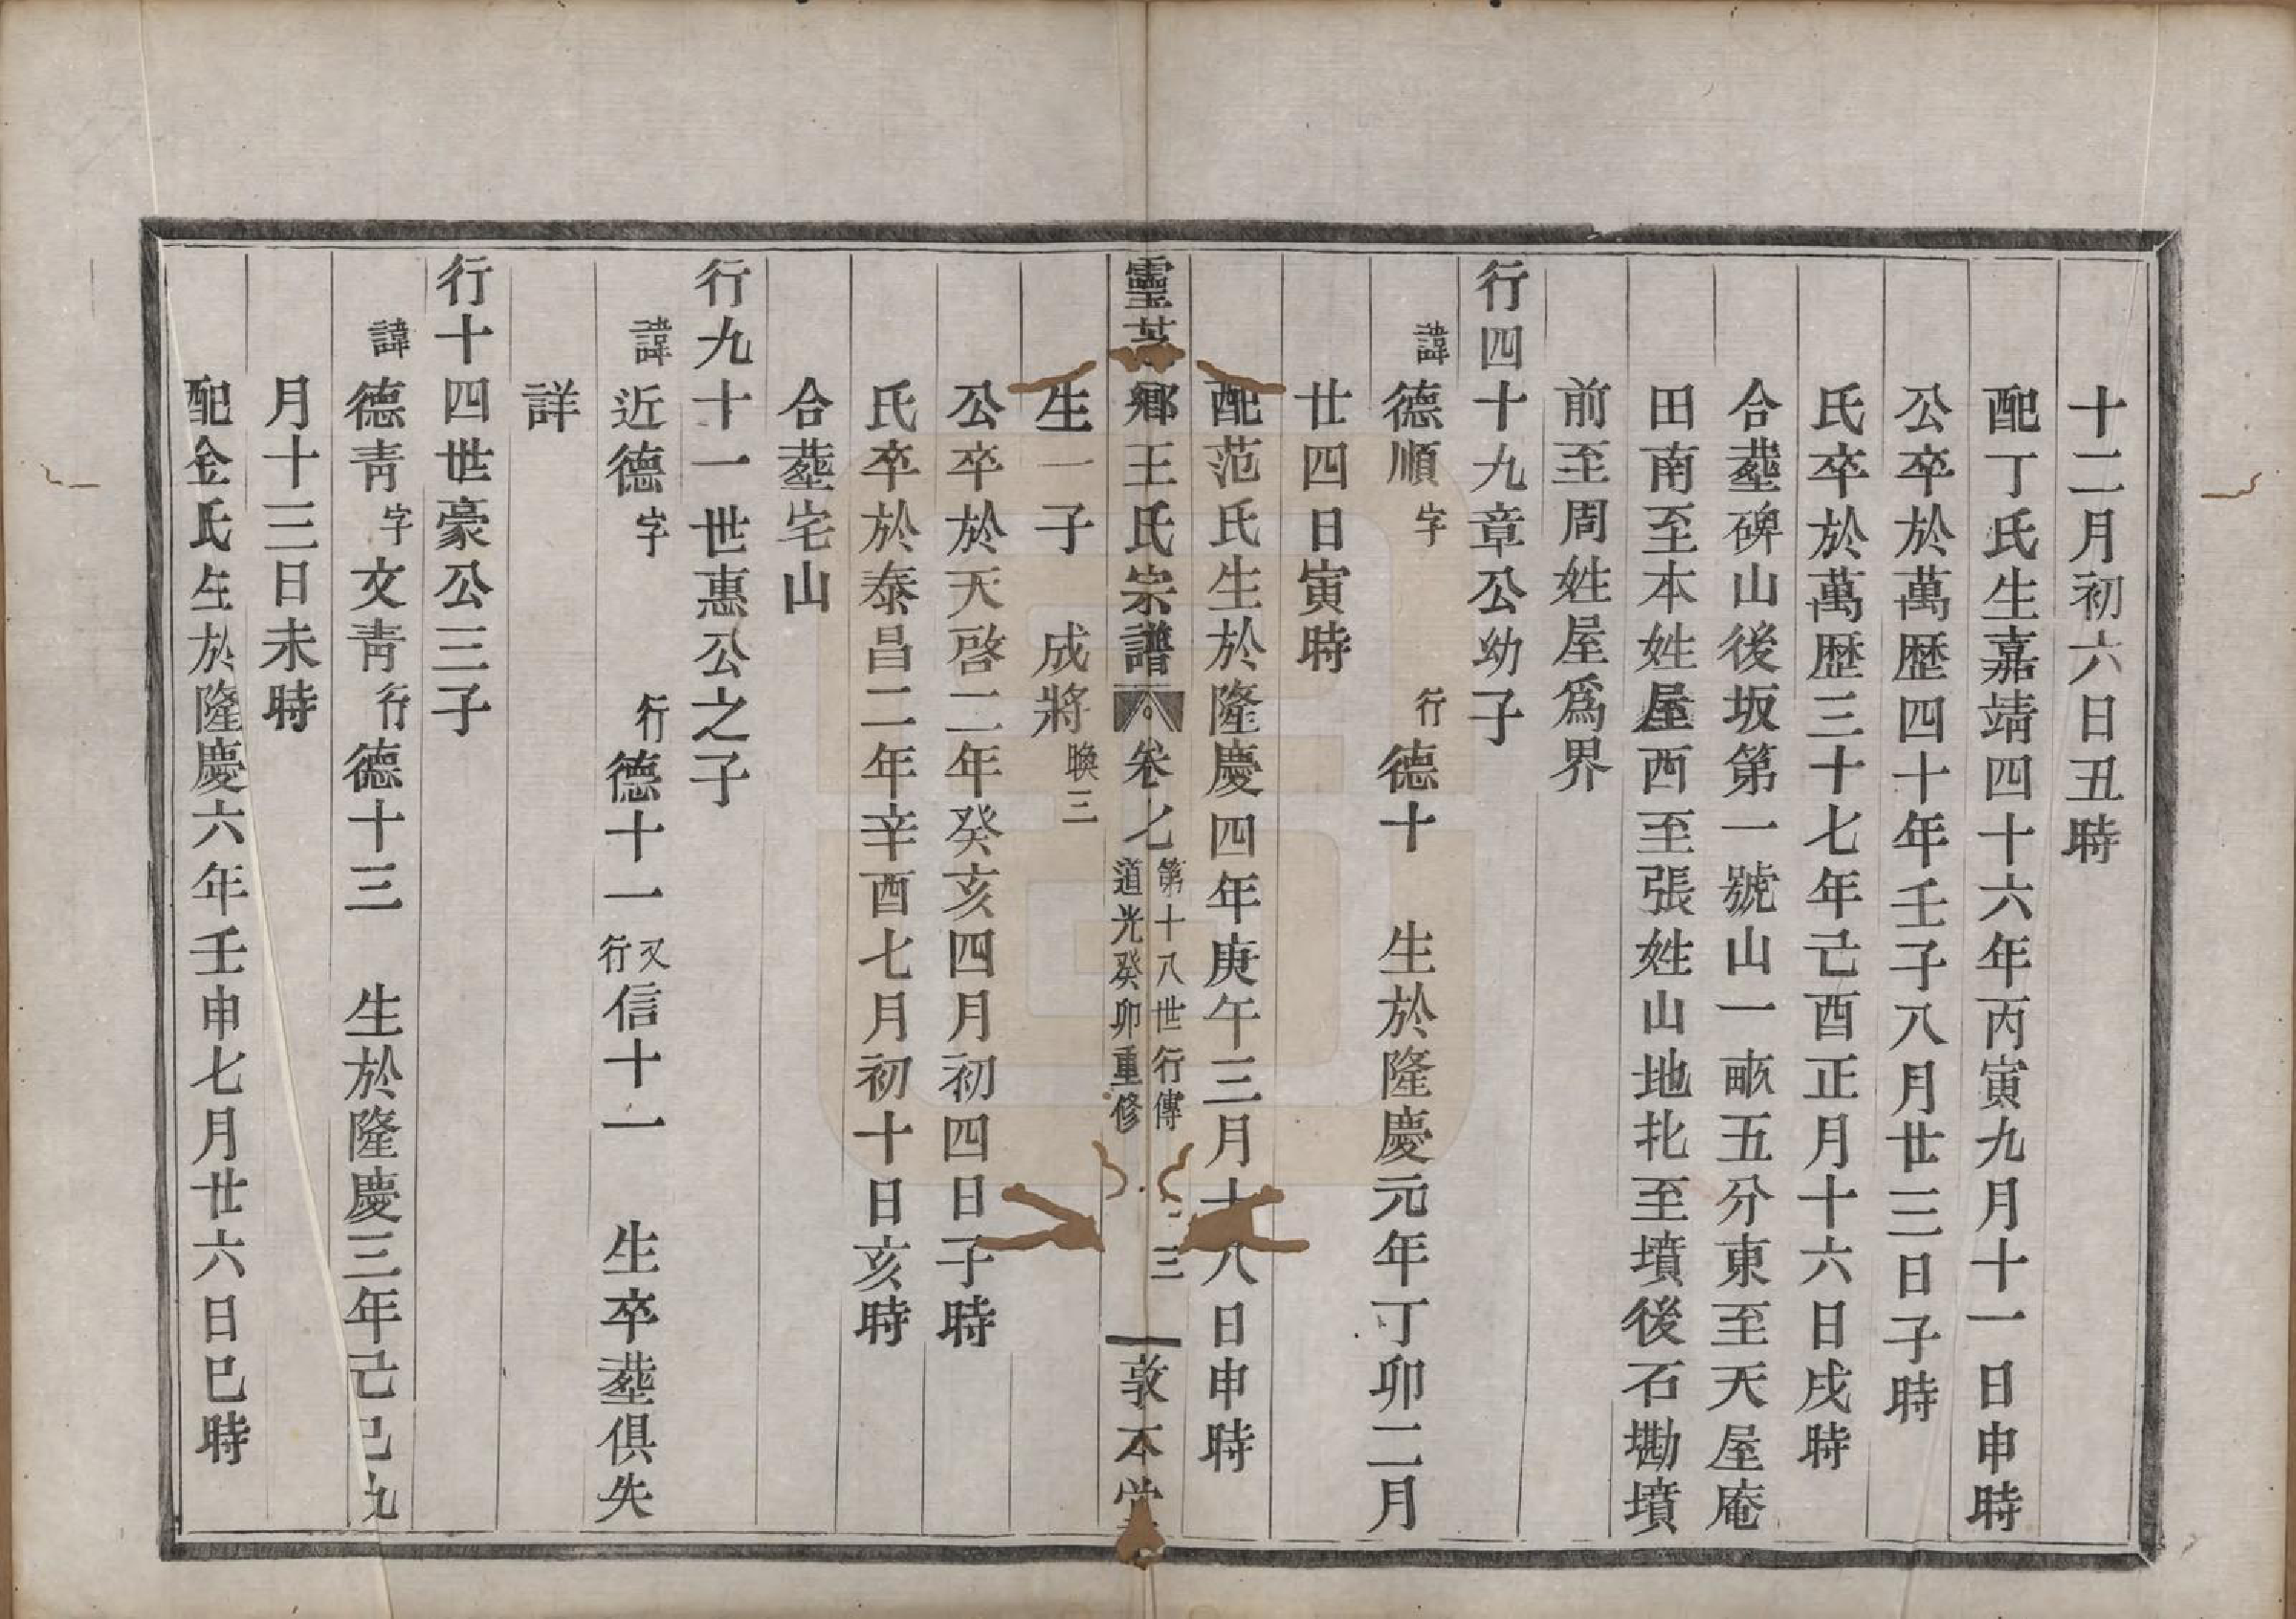 十二月初六日丑時
配丁氏生嘉靖四十六年丙寅九月十一日申時
公卒於萬歷四十年壬子八月廿三日子時
氏卒於萬歷三十七年己酉正月十六日戌時
合塟碑山後坂第一號山一畝五分東至天屋庵
田南至本姓屋西至張姓山地北至墳後石墈墳
前至周姓屋爲界
行四十九章公幼子
諱德順字 行德十 生於隆慶元年丁卯二月
廿四日寅時
配范氏生於隆慶四年庚午三月十八日申時
靈芝鄉王氏宗譜 卷七 第十八世行傳 道光癸卯重修 三 敦本堂
生一子 成將 喚三
公卒於天啓二年癸亥四月初四日子時
氏卒於泰昌二年辛酉七月初十日亥時
合塟宅山
行九十一世惠公之子
諱近德字 行德十一 又行信十一 生卒塟俱失
詳
行十四世豪公三子
諱德青字文青行德十三 生於隆慶三年己巳九
月十三日未時
配金氏生於隆慶六年壬申七月廿六日巳時